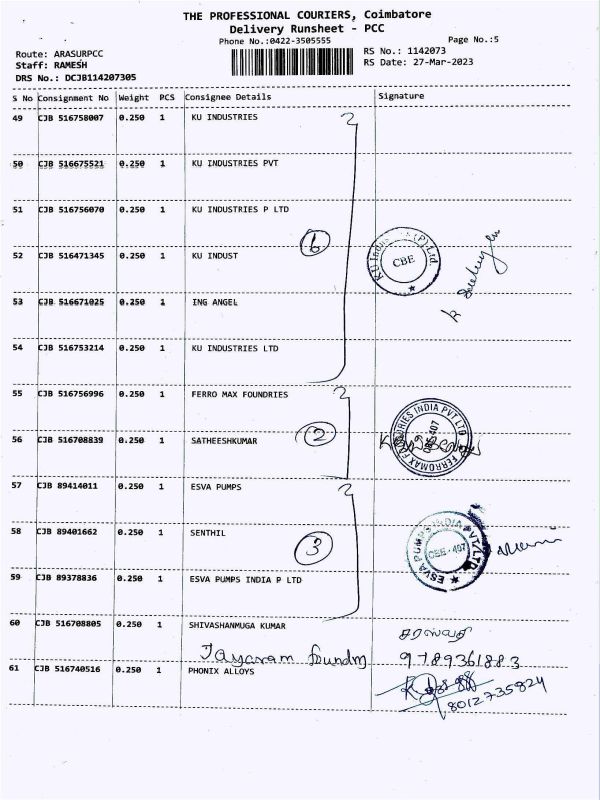 THE PROFESSIONAL COURIERS, Coimbatore
Delivery Runsheet - PCC
Phone No.:0422-3505555
Page No.:5
Route: ARASURPCC
Staff: RAMESH
DRS No.: DCJB114207305
RS No.: 1142073
RS Date: 27-Mar-2023
S No Consignment No Weight PCS Consignee Details Signature
49 CJB 516758007 0.250 1 KU INDUSTRIES
50 CJB 516675521 0.250 1 KU INDUSTRIES PVT
51 CJB 516756070 0.250 1 KU INDUSTRIES P LTD
6
K.U Indus s (P) Ltd.
CBE
52 CJB 516471345 0.250 1 KU INDUST
53 CJB 516671025 0.250 1 ING ANGEL
54 CJB 516753214 0.250 1 KU INDUSTRIES LTD
55 CJB 516756996 0.250 1 FERRO MAX FOUNDRIES
2
FERROMAX FOUNDRIES INDIA PVT LTD
CBE-407
56 CJB 516708839 0.250 1 SATHEESHKUMAR
57 CJB 89414011 0.250 1 ESVA PUMPS
58 CJB 89401662 0.250 1 SENTHIL
3
ESVA PUMPS INDIA PVT LTD
CBE-407
59 CJB 89378836 0.250 1 ESVA PUMPS INDIA P LTD
60 CJB 516708805 0.250 1 SHIVASHANMUGA KUMAR
சரஸ்வதி
Jayaram foundry
9789361883
61 CJB 516740516 0.250 1 PHONIX ALLOYS
8012735824